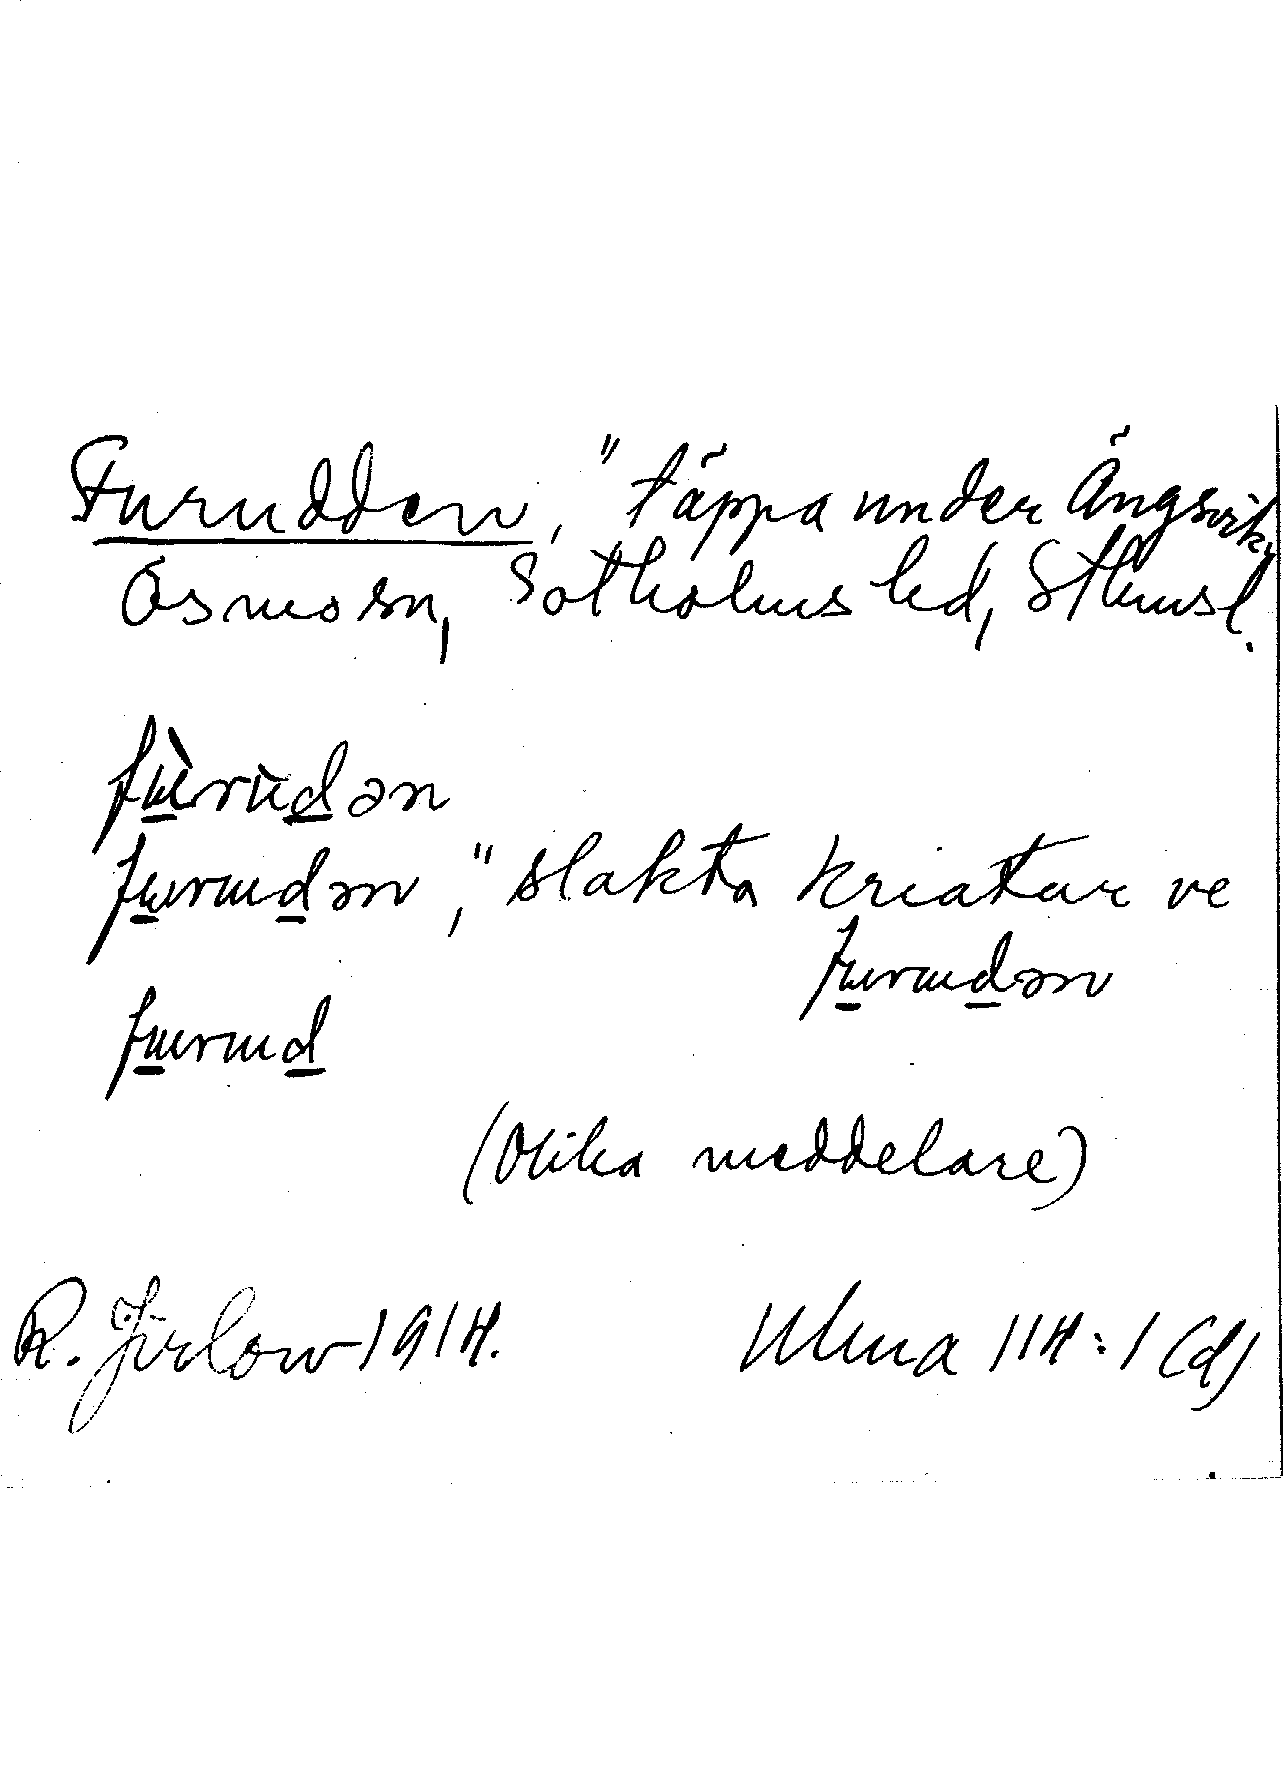 Furudden, "täppa under Ängsvik,
Ösmo sn, Sotholms hd, Sthmsl.
fu̠rud̠ən
fu̠rud̠ən, "slakta kriatur ve
fu̠rud̠ən
fu̠rud̠
(Olika meddelare)
R. Jirlow 1914. Ulma 114:1 (d)